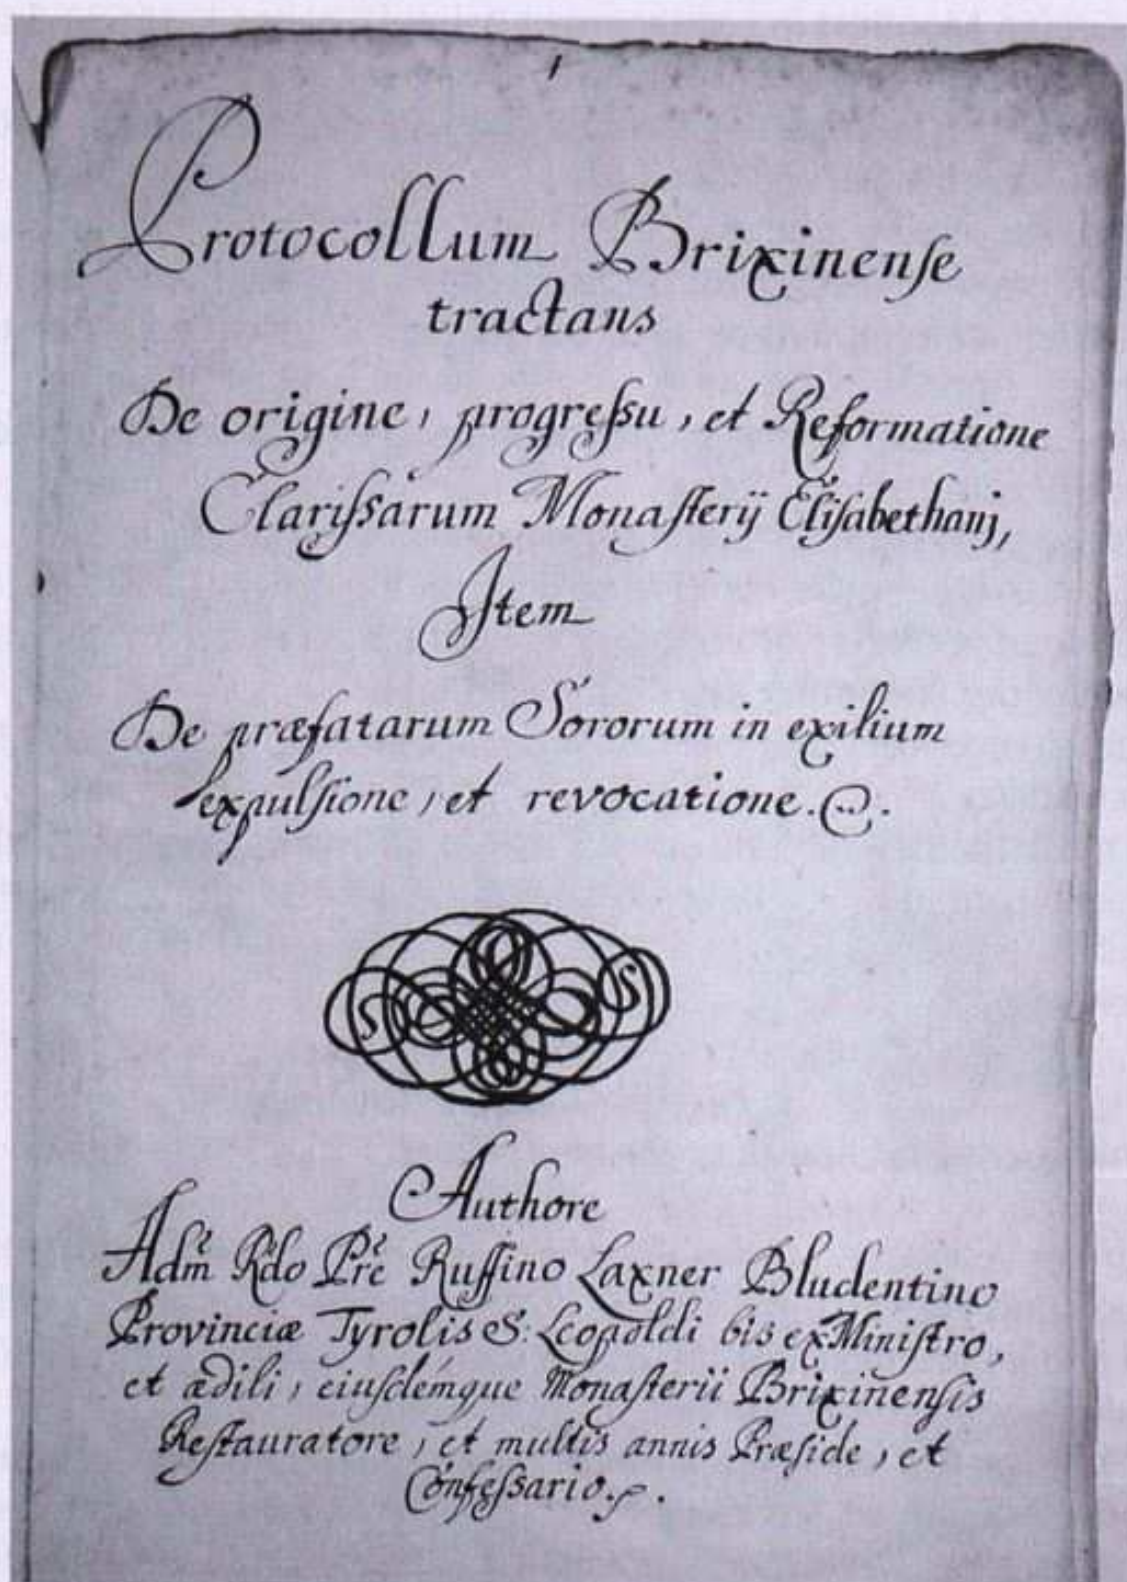 1
Protocollum Brixinenſe
tractans
De origine, progreſsu, et Reformatione
Clariſsarum Monaſterij Eliſabethanj,
Item
De præfatarum Sororum in exilium
expulſione, et revocatione.
S S
Authore
Adm̃ Rdo Prẽ Ruffino Laxner Bludentino
Provinciæ Tyrolis S: Leopoldi bis exMiniſtro,
et ædili, eiuſdémque Monaſterii Brixinenſis
Reſtauratore, et multis annis Præſide, et
Confeſsario.